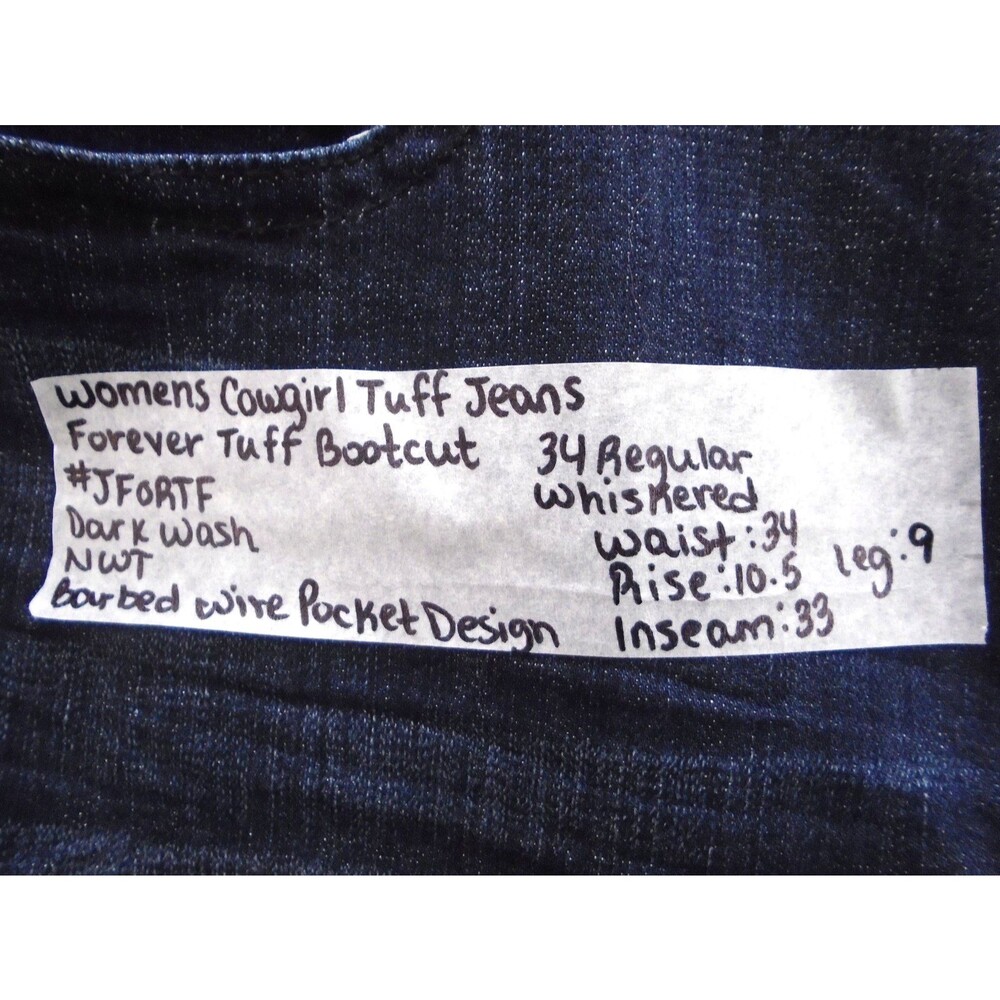 Womens Cowgirl Tuff Jeans
Forever Tuff Bootcut
#JFORTF
Dark Wash
NWT
Barbed Wire Pocket Design
34 Regular
Whiskered
Waist:34
Rise:10.5 leg:9
Inseam:33